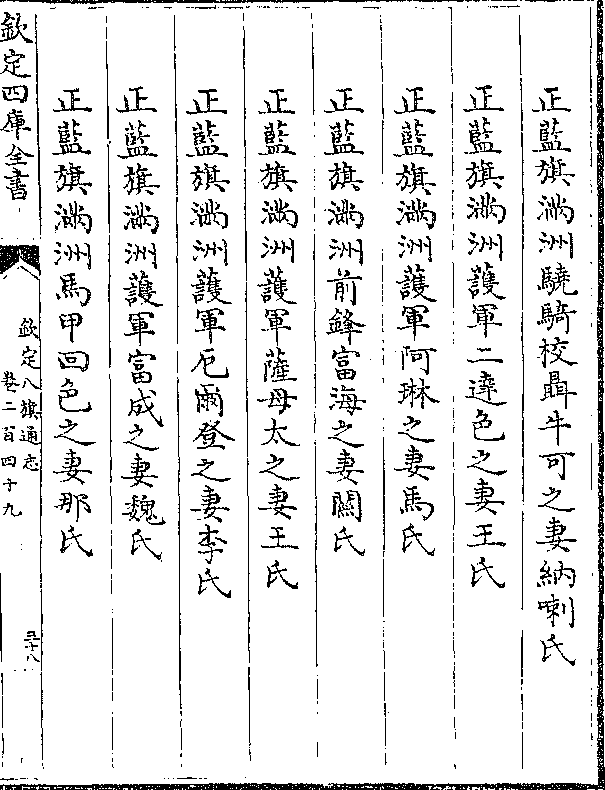 正藍旗滿洲驍騎校聶牛可之妻納喇氏
正藍旗滿洲護軍二達色之妻王氏
正藍旗滿洲護軍阿琳之妻馬氏
正藍旗滿洲前鋒富海之妻關氏
正藍旗滿洲護軍薩母太之妻王氏
正藍旗滿洲護軍厄爾登之妻李氏
正藍旗滿洲護軍富成之妻魏氏
正藍旗滿洲馬甲回色之妻那氏
欽定四庫全書
欽定八旗通志
卷二百四十九
三十八